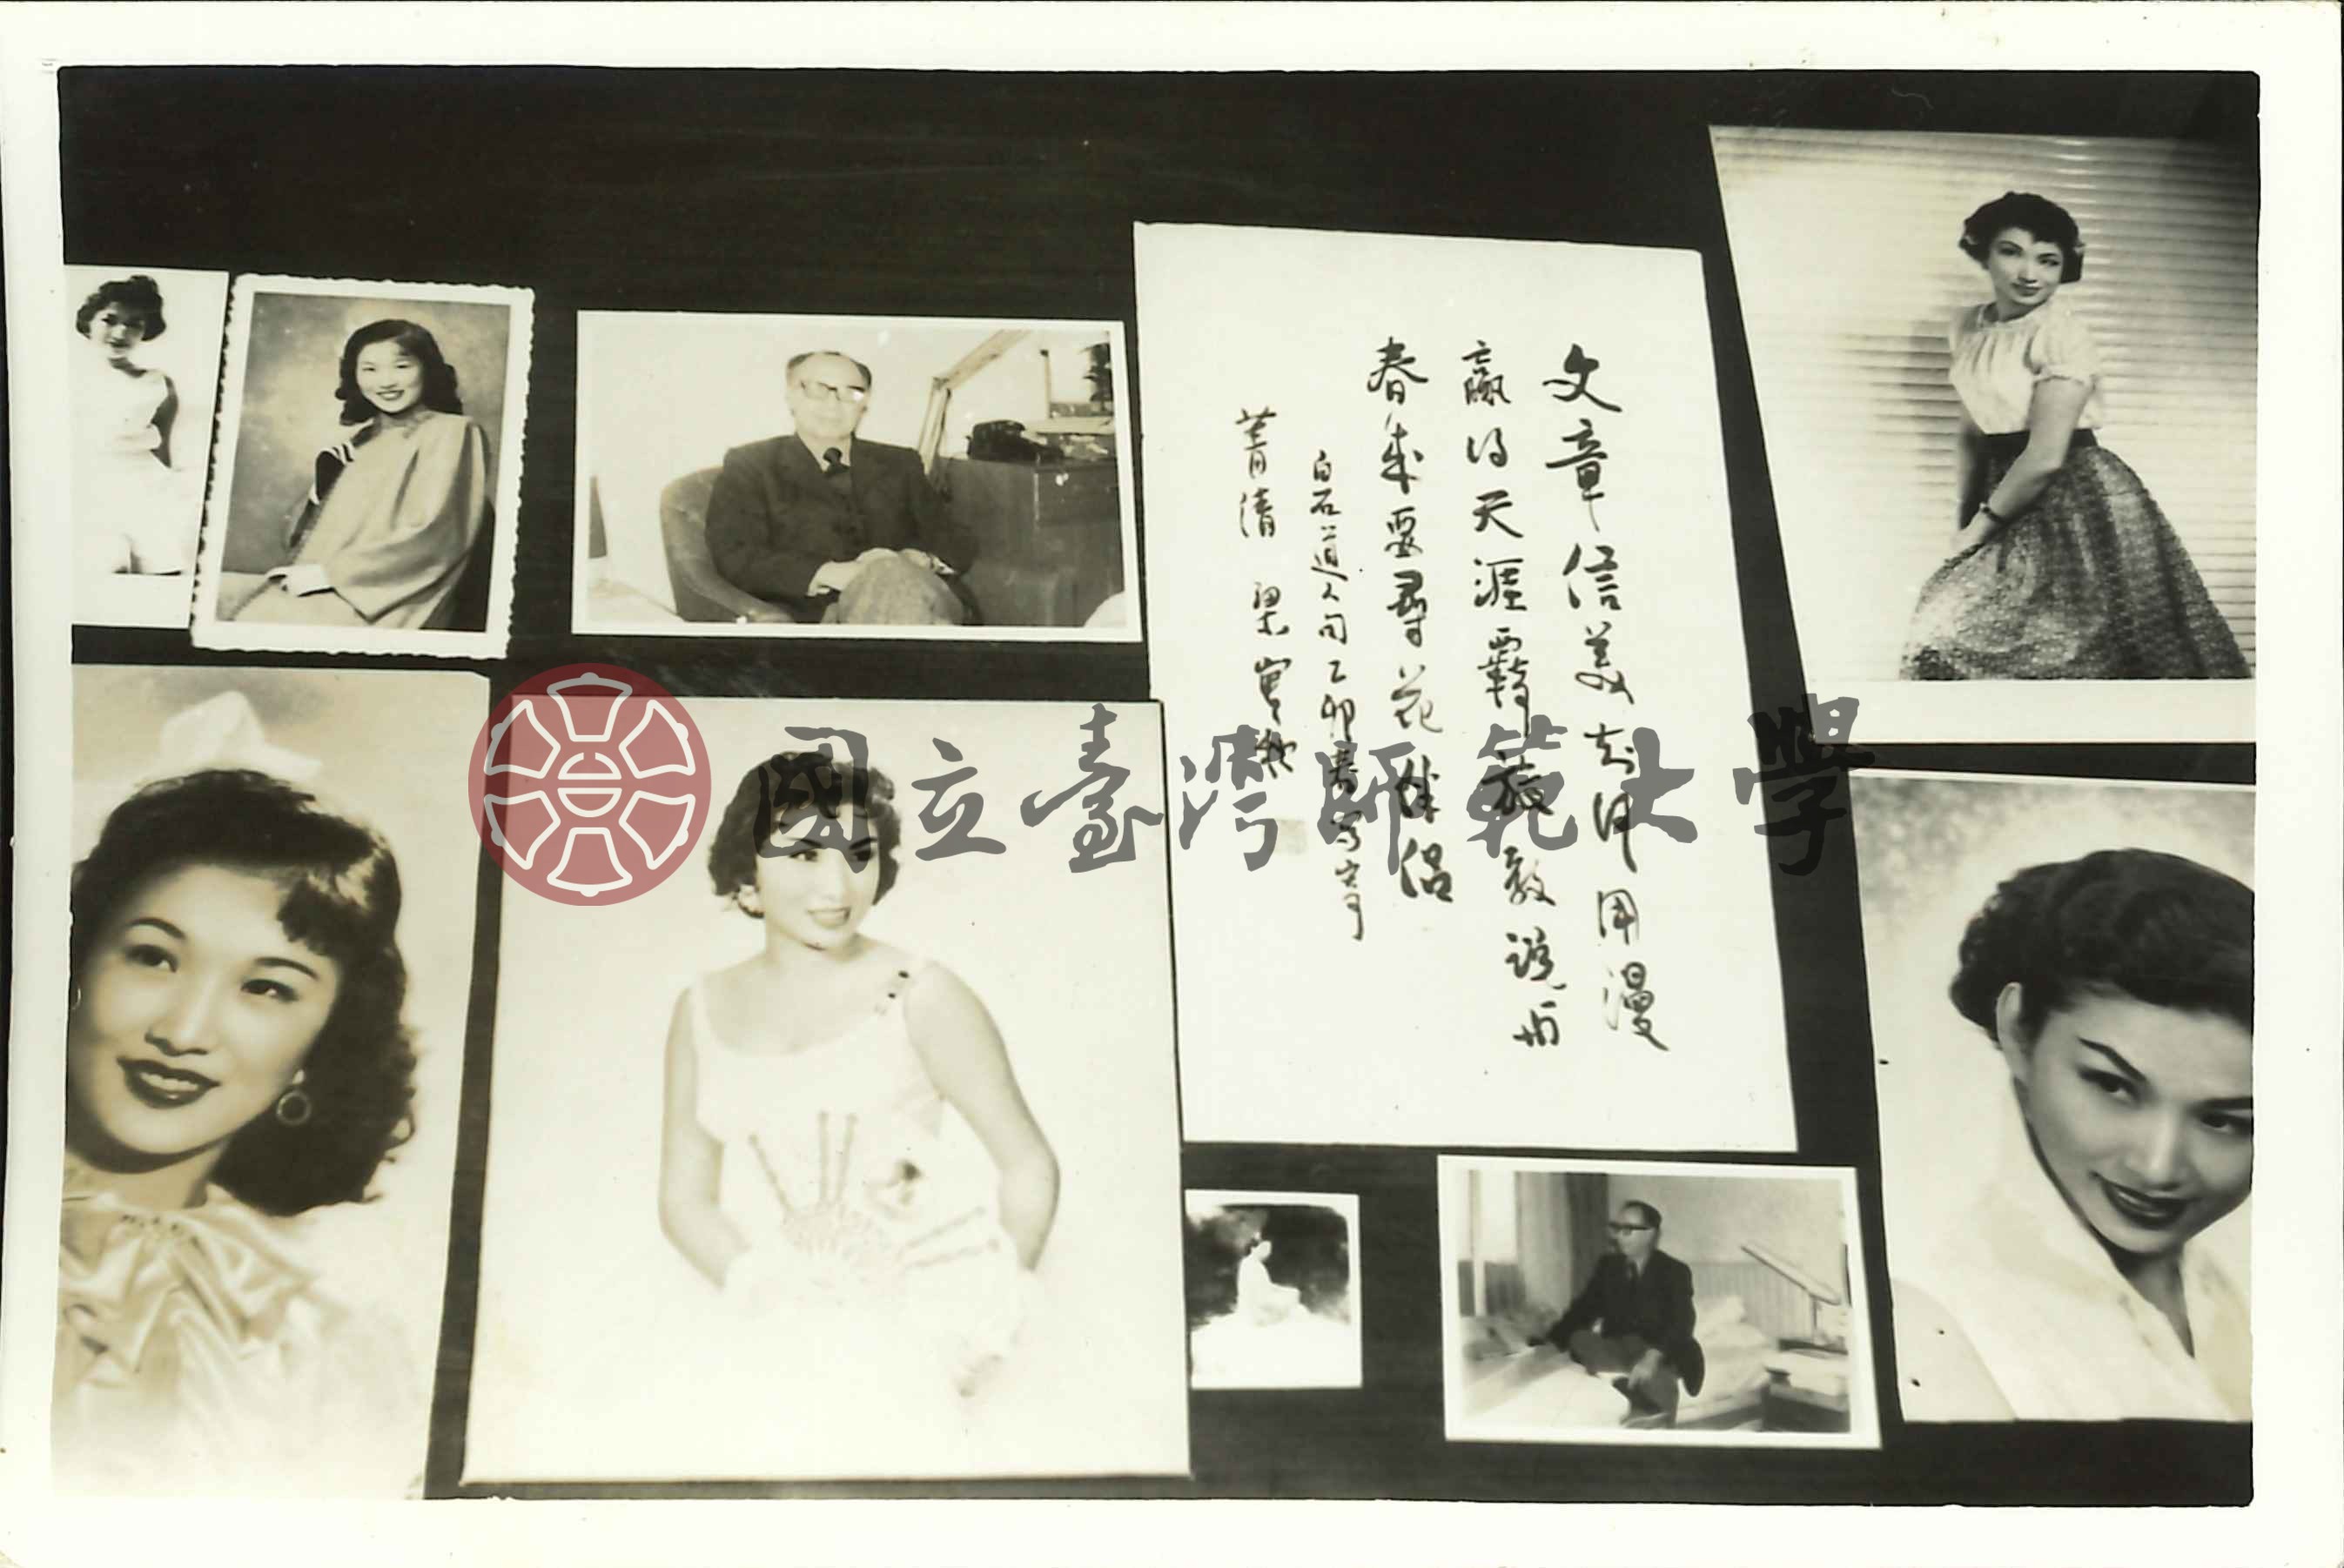 文章信美知何用漫
贏得天涯羈旅教說與
春來要尋花伴侶
白石道人句乙卯春寫寄
菁清 梁實秋
國立臺灣師範大學